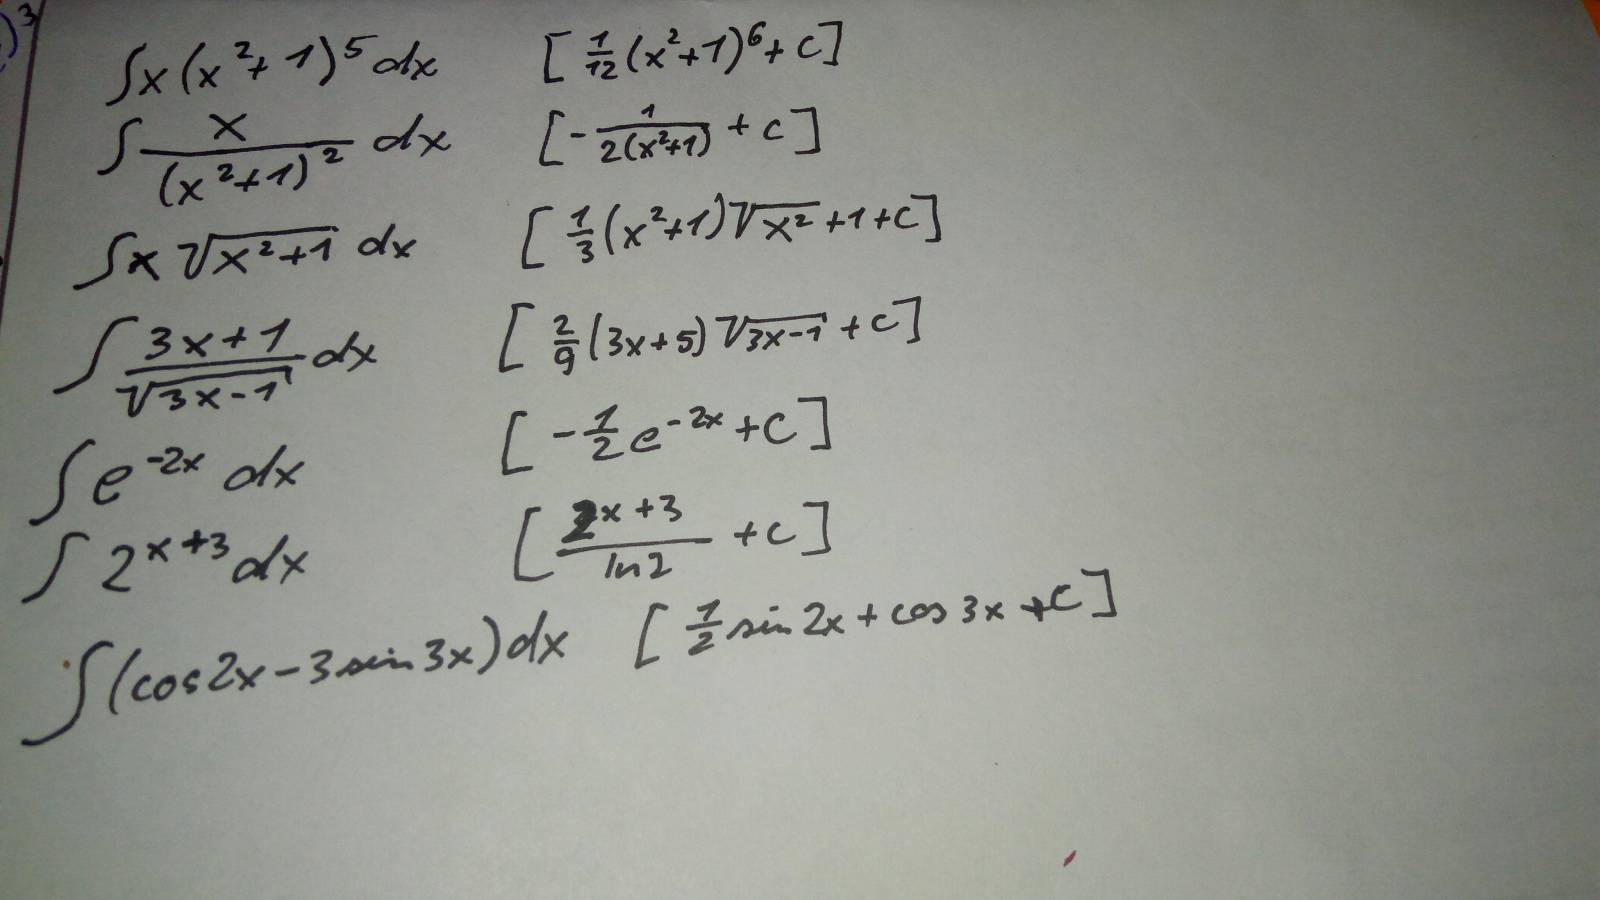 )³
∫x(x²+1)⁵dx [1/12(x²+1)⁶+c]
∫x/(x²+1)² dx [-1/2(x²+1) + c]
∫x√(x²+1) dx [1/3(x²+1)√(x²)+1+c]
∫(3x+1)/√(3x-1) dx [2/9(3x+5)√(3x-1)+c]
∫e⁻²ˣ dx [-1/2e⁻²ˣ+c]
∫2ˣ⁺³dx [2ˣ⁺³/ln2 +c]
∫(cos2x-3sin3x)dx [1/2sin2x+cos3x+c]